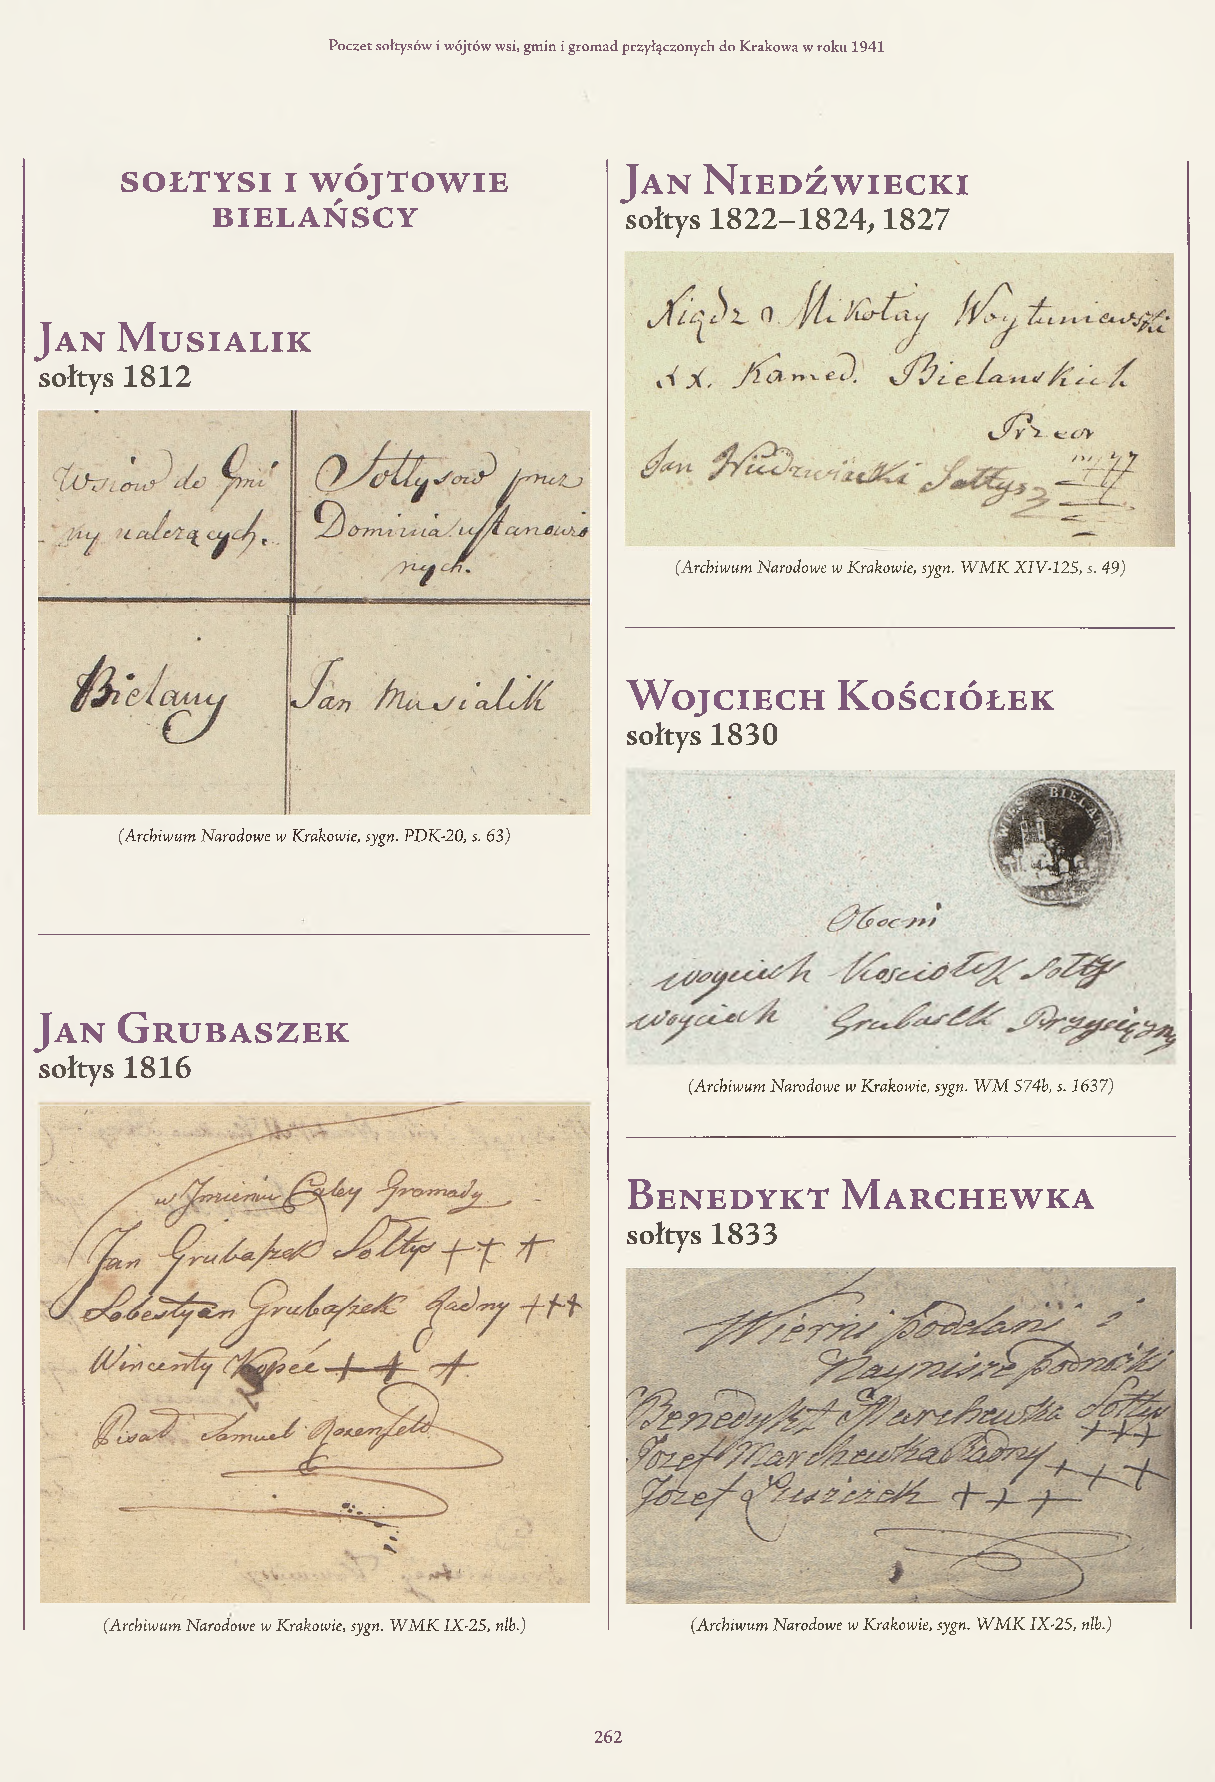 Poczet sołtysów i wójtów wsi, gmin i gromad przyłączonych do Krakowa w roku 1941
SOŁTYSI I WÓJTOWIE
BIELAŃSCY
JAN MUSIALIK
sołtys 1812
Wsiow do Gmi
ny należących.
Sołtysow przez
Dominia ustanowio
nych.
Bielany
Jan Musialik
(Archiwum Narodowe w Krakowie, sygn. PDK-20, s. 63)
JAN GRUBASZEK
sołtys 1816
w Jmieniu Całey Gromady
Jan Grubaszek Sołtys + + +
Sobestyan Grubaszek Radny +++
Wincenty Kopeć + + +
Pisał Samuel Rozenfeld
(Archiwum Narodowe w Krakowie, sygn. WMK IX-25, nlb.)
JAN NIEDŹWIECKI
sołtys 1822–1824, 1827
Xiądz Mikołay Woytuniewski
XX. Kamed. Bielanskich
Przeor
Jan Sołtys
(Archiwum Narodowe w Krakowie, sygn. WMK XIV-125, s. 49)
WOJCIECH KOŚCIÓŁEK
sołtys 1830
WIES BIELANY
Obecni
woyciech Kosciołek Sołtys
woyciech Grubasek Przysięzny
(Archiwum Narodowe w Krakowie, sygn. WM 574b, s. 1637)
BENEDYKT MARCHEWKA
sołtys 1833
Wierni poddani i
Nayniższe podnóżki
Benedykt Marchewka Sołtys
+++
Jozef Marchewka Radny + + +
Jozef Łuszczek + + +
(Archiwum Narodowe w Krakowie, sygn. WMK IX-25, nlb.)
262